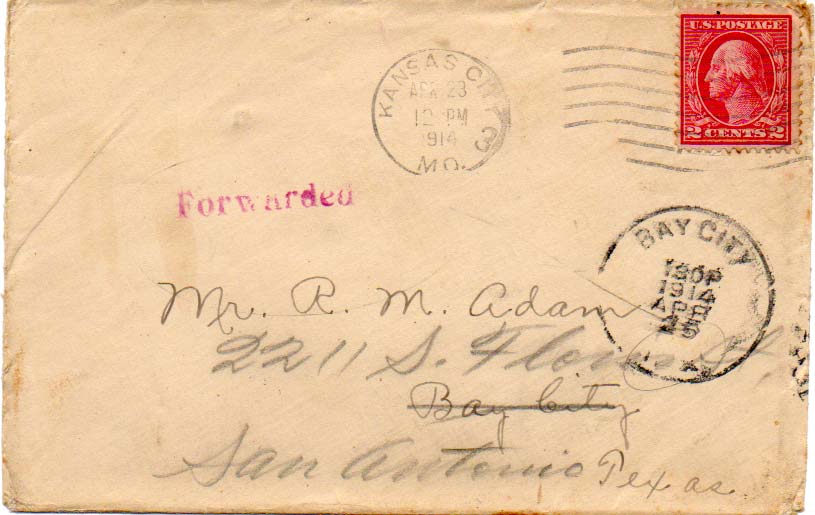 U.S. POSTAGE
2 CENTS 2
KANSAS CITY 3
APR 23
12 PM
1914
MO.
Forwarded
BAY CITY
1914
APR
25
Mr. R. M. Adam
2211 S. Flores St.
Bay City
San Antonio Texas